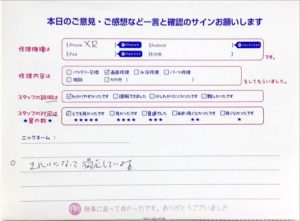 本日のご意見・ご感想など一言と確認のサインお願いします
修理機種は
iPhone XR
Android
iPad
その他
修理内容は
バッテリー交換 画面修理 水没修理 パーツ修理
その他
をしてもらいました。
スタッフの説明は
わかりやすかったです 理解できました 少しわかりにくかったです 難しかったです
スタッフの対応は
★星の数★
とても良かったです 良かったです 普通でした
★★★★★ ★★★★ ★★★ ★★ ★
ニックネーム:
きれいになって満足しています。
無事に直って良かったです。ありがとうございました